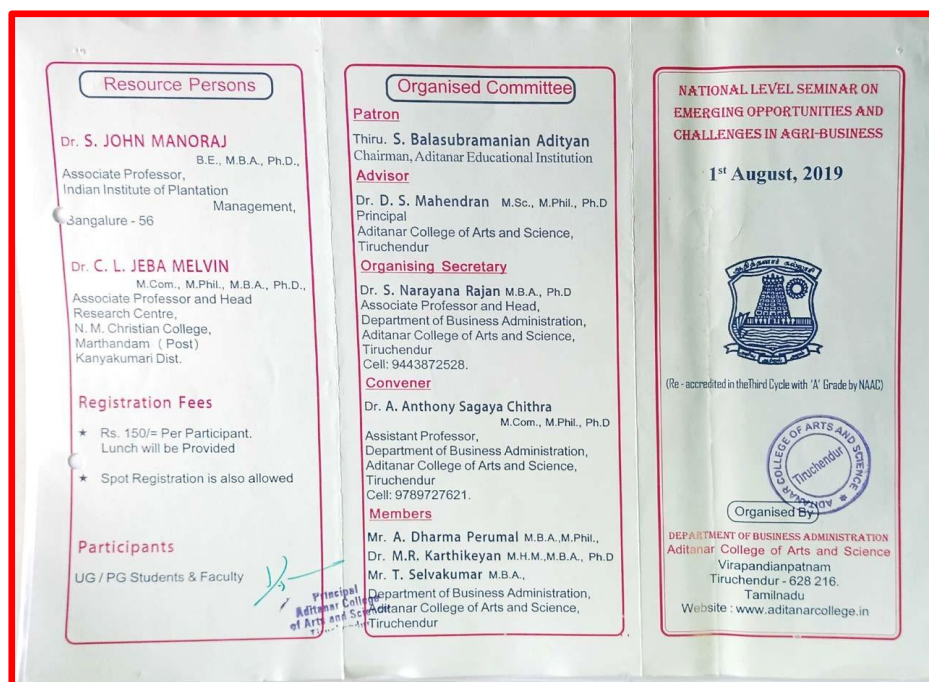 Resource Persons
Dr. S. JOHN MANORAJ
B.E., M.B.A., Ph.D.,
Associate Professor,
Indian Institute of Plantation
Management,
Bangalure - 56
Dr. C. L. JEBA MELVIN
M.Com., M.Phil., M.B.A., Ph.D.,
Associate Professor and Head
Research Centre,
N. M. Christian College,
Marthandam ( Post)
Kanyakumari Dist.
Registration Fees
★ Rs. 150/= Per Participant.
Lunch will be Provided
★ Spot Registration is also allowed
Participants
UG / PG Students & Faculty
Principal
Aditanar College
of Arts and Science
Organised Committee
Patron
Thiru. S. Balasubramanian Adityan
Chairman, Aditanar Educational Institution
Advisor
Dr. D. S. Mahendran M.Sc., M.Phil., Ph.D
Principal
Aditanar College of Arts and Science,
Tiruchendur
Organising Secretary
Dr. S. Narayana Rajan M.B.A., Ph.D
Associate Professor and Head,
Department of Business Administration,
Aditanar College of Arts and Science,
Tiruchendur
Cell: 9443872528.
Convener
Dr. A. Anthony Sagaya Chithra
M.Com., M.Phil., Ph.D
Assistant Professor,
Department of Business Administration,
Aditanar College of Arts and Science,
Tiruchendur
Cell: 9789727621.
Members
Mr. A. Dharma Perumal M.B.A.,M.Phil.,
Dr. M.R. Karthikeyan M.H.M.,M.B.A., Ph.D
Mr. T. Selvakumar M.B.A.,
Department of Business Administration,
Aditanar College of Arts and Science,
Tiruchendur
NATIONAL LEVEL SEMINAR ON
EMERGING OPPORTUNITIES AND
CHALLENGES IN AGRI-BUSINESS
1st August, 2019
ஆதித்தனார் கல்லூரி
(Re - accredited in theThird Cycle with 'A' Grade by NAAC)
ADITANAR COLLEGE OF ARTS AND SCIENCE
Tiruchendur
Organised By
DEPARTMENT OF BUSINESS ADMINISTRATION
Aditanar College of Arts and Science
Virapandianpatnam
Tiruchendur - 628 216.
Tamilnadu
Website : www.aditanarcollege.in